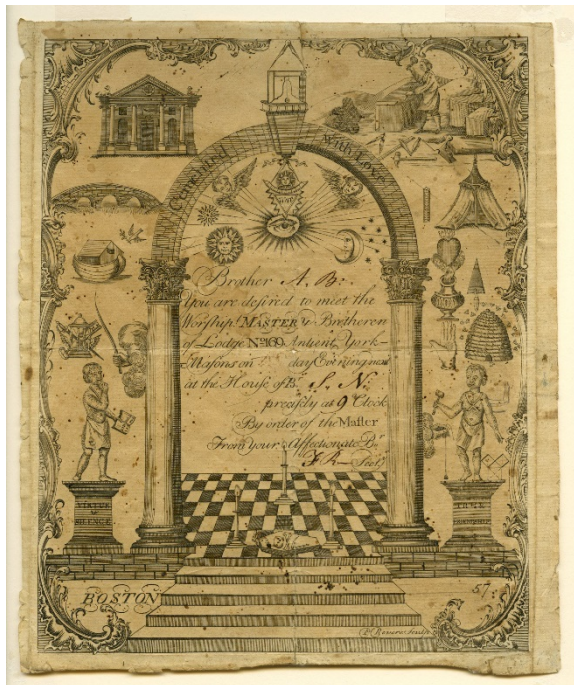 Cemented With Love
Brother A. B:
You are desired to meet the
Worship.l MASTER & Brethren
of Lodge No 169 Antient York
Masons on day Evening next
at the House of Br. S. N:
precisely at 9 Clock
By order of the Master
From your Affectionate Br
J R Secy
VIRTUE
SILENCE
BOSTON
57:
P Revere Sculp